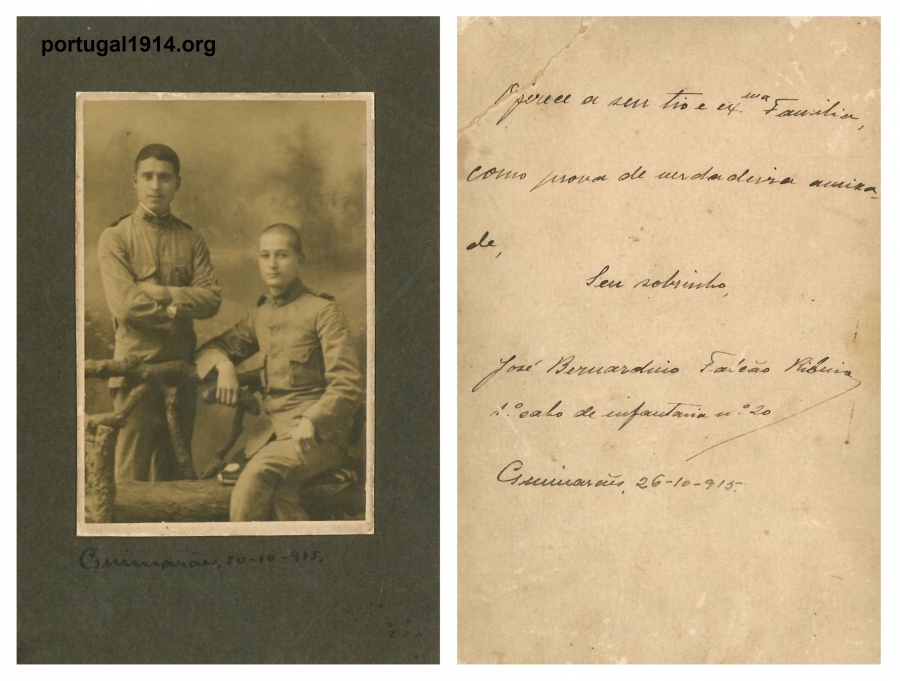 portugal1914.org
Guimarães, 20-10-915.
Oferece a seu tio e ex.ma Familia,
como prova de verdadeira amiza-
de,
Seu sobrinho,
José Bernardino Falcão Ribeiro
1.º cabo de infantaria n.º 20
Guimarães, 26-10-915.